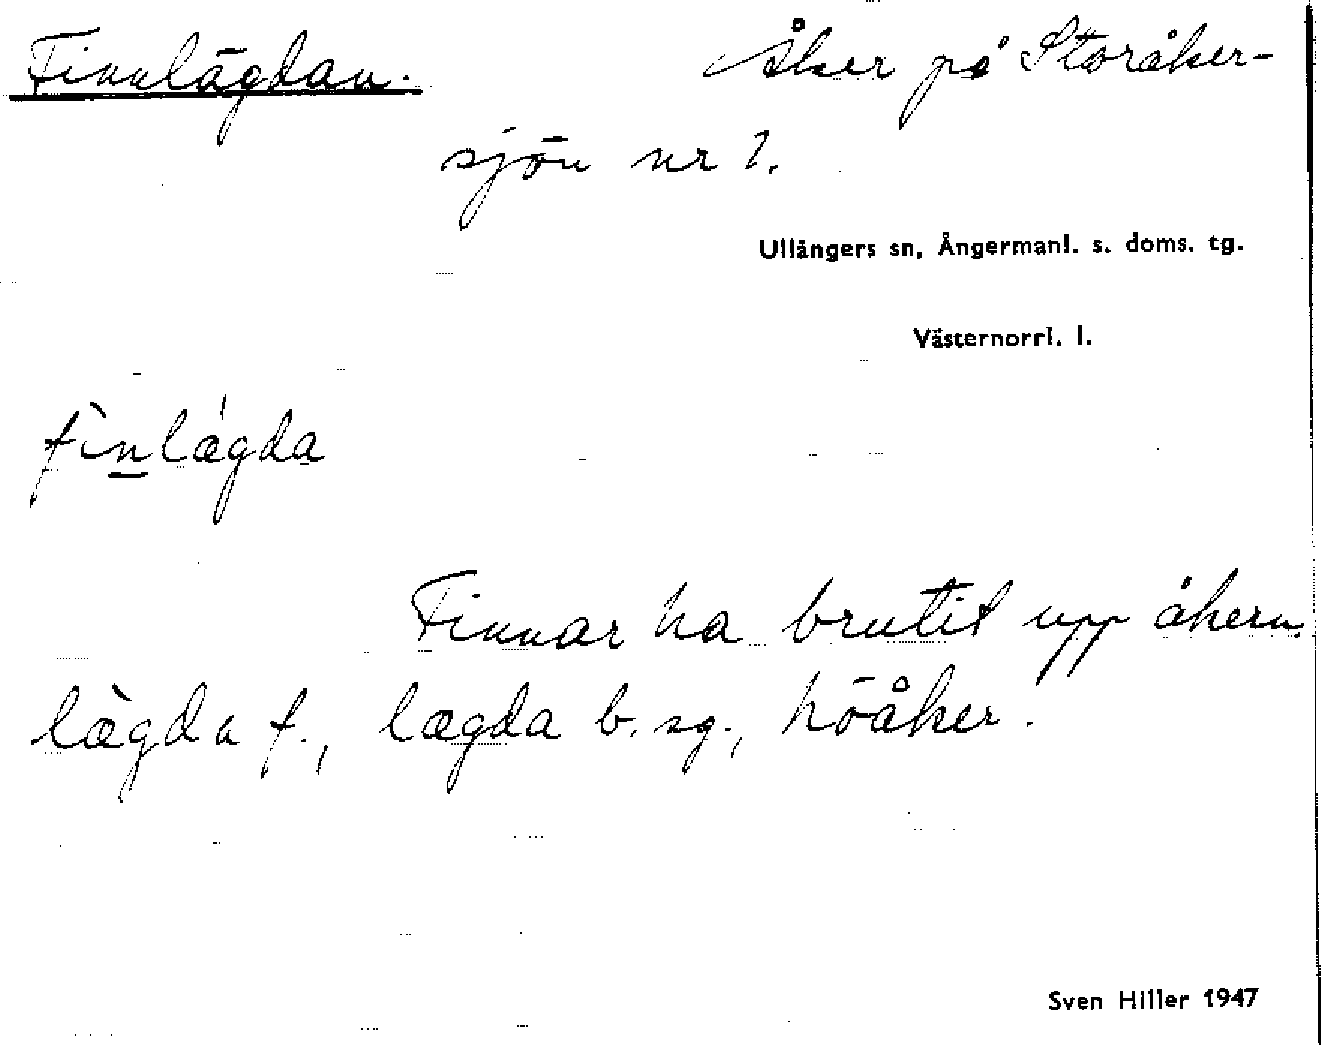 Finnlägdan. Åker på Storåker-
sjön nr 1.
Ullångers sn, Ångermanl. s. doms. tg.
Västernorrl. l.
fìnlǽgda
Finnar ha brutit upp åkern.
læ̀gda f., lægda b. sg., höåker.
Sven Hiller 1947